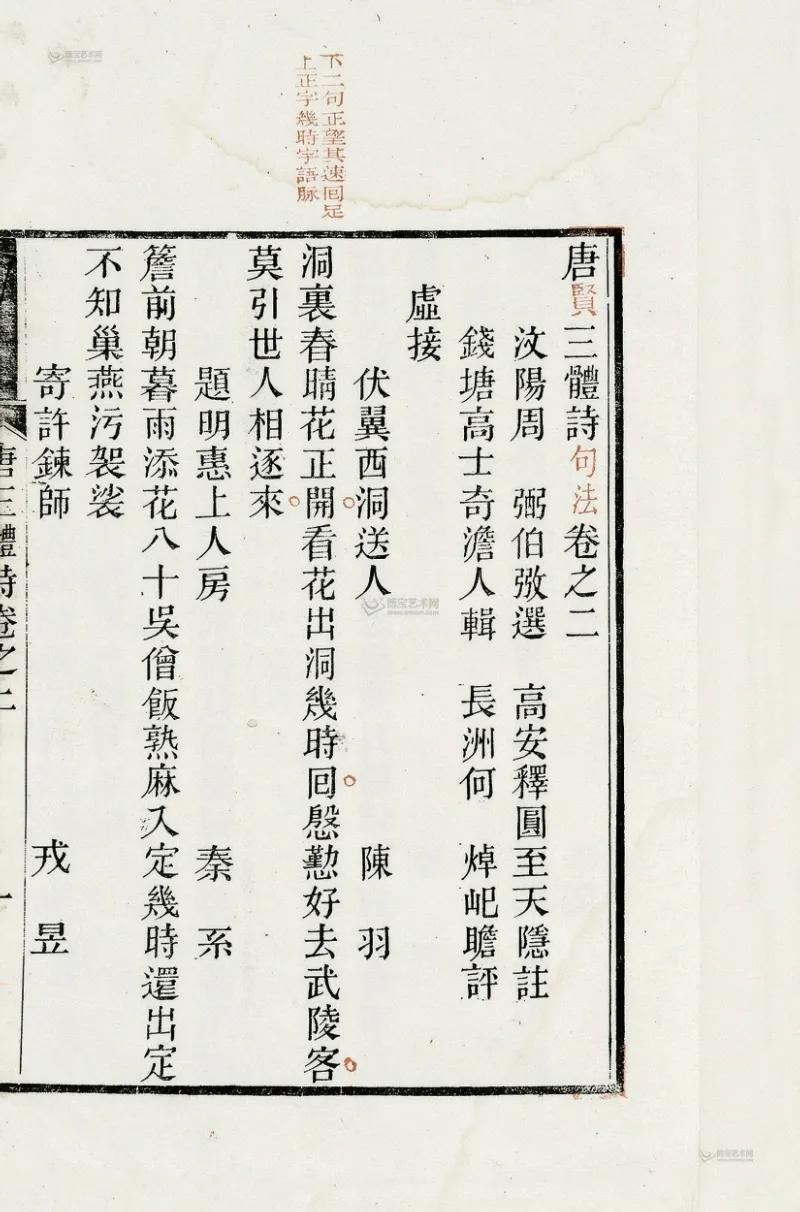 下二句正望其速回足
上正字幾時字語脉
唐賢三體詩句法卷之二
汶陽周　弼伯弜選　高安釋圓至天隱註
錢塘高士奇澹人輯　長洲何　焯屺瞻評
虛接
伏翼西洞送人　陳羽
洞裏春晴花正開看花出洞幾時回慇懃好去武陵客
莫引世人相逐來
題明惠上人房　秦系
簷前朝暮雨添花八十吳僧飯熟麻入定幾時還出定
不知巢燕污袈裟
寄許鍊師　戎昱
唐三體詩卷之二　一
博宝艺术网
博宝艺术网
博宝艺术网